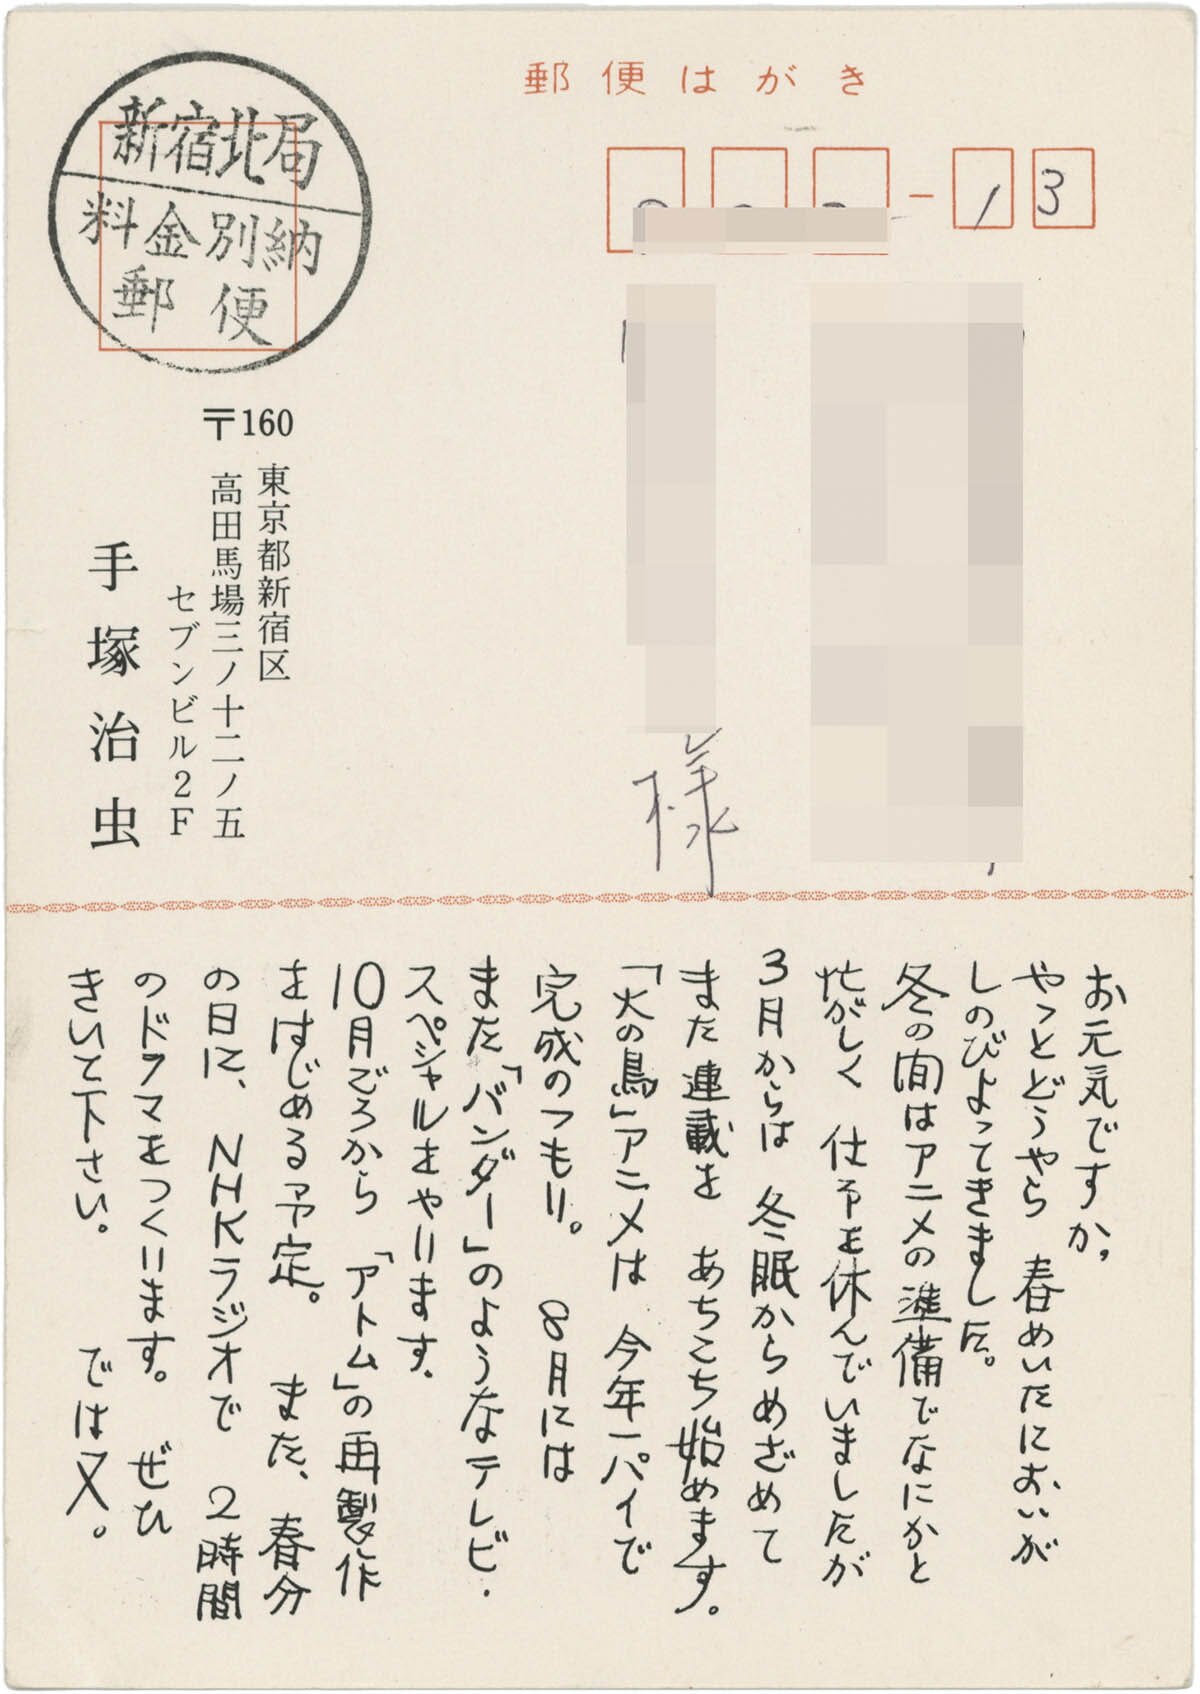 郵便はがき
新宿北局
料金別納
郵便
13
様
〒160
東京都新宿区
高田馬場三ノ十二ノ五
セブンビル2F
手塚治虫
お元気ですか。
やっとどうやら 春めいたにおいが
しのびよってきました。
冬の間はアニメの準備でなにかと
忙がしく 仕事を休んでいましたが
3月からは 冬眠からめざめて
また連載を あちこち始めます。
「火の鳥」アニメは 今年一パイで
完成のつもり。 8月には
また「バンダー」のようなテレビ・
スペシャルをやります。
10月ごろから 「アトム」の再製作
をはじめる予定。 また、春分
の日に、NHKラジオで 2時間
のドラマをつくります。 ぜひ
きいて下さい。 では又。